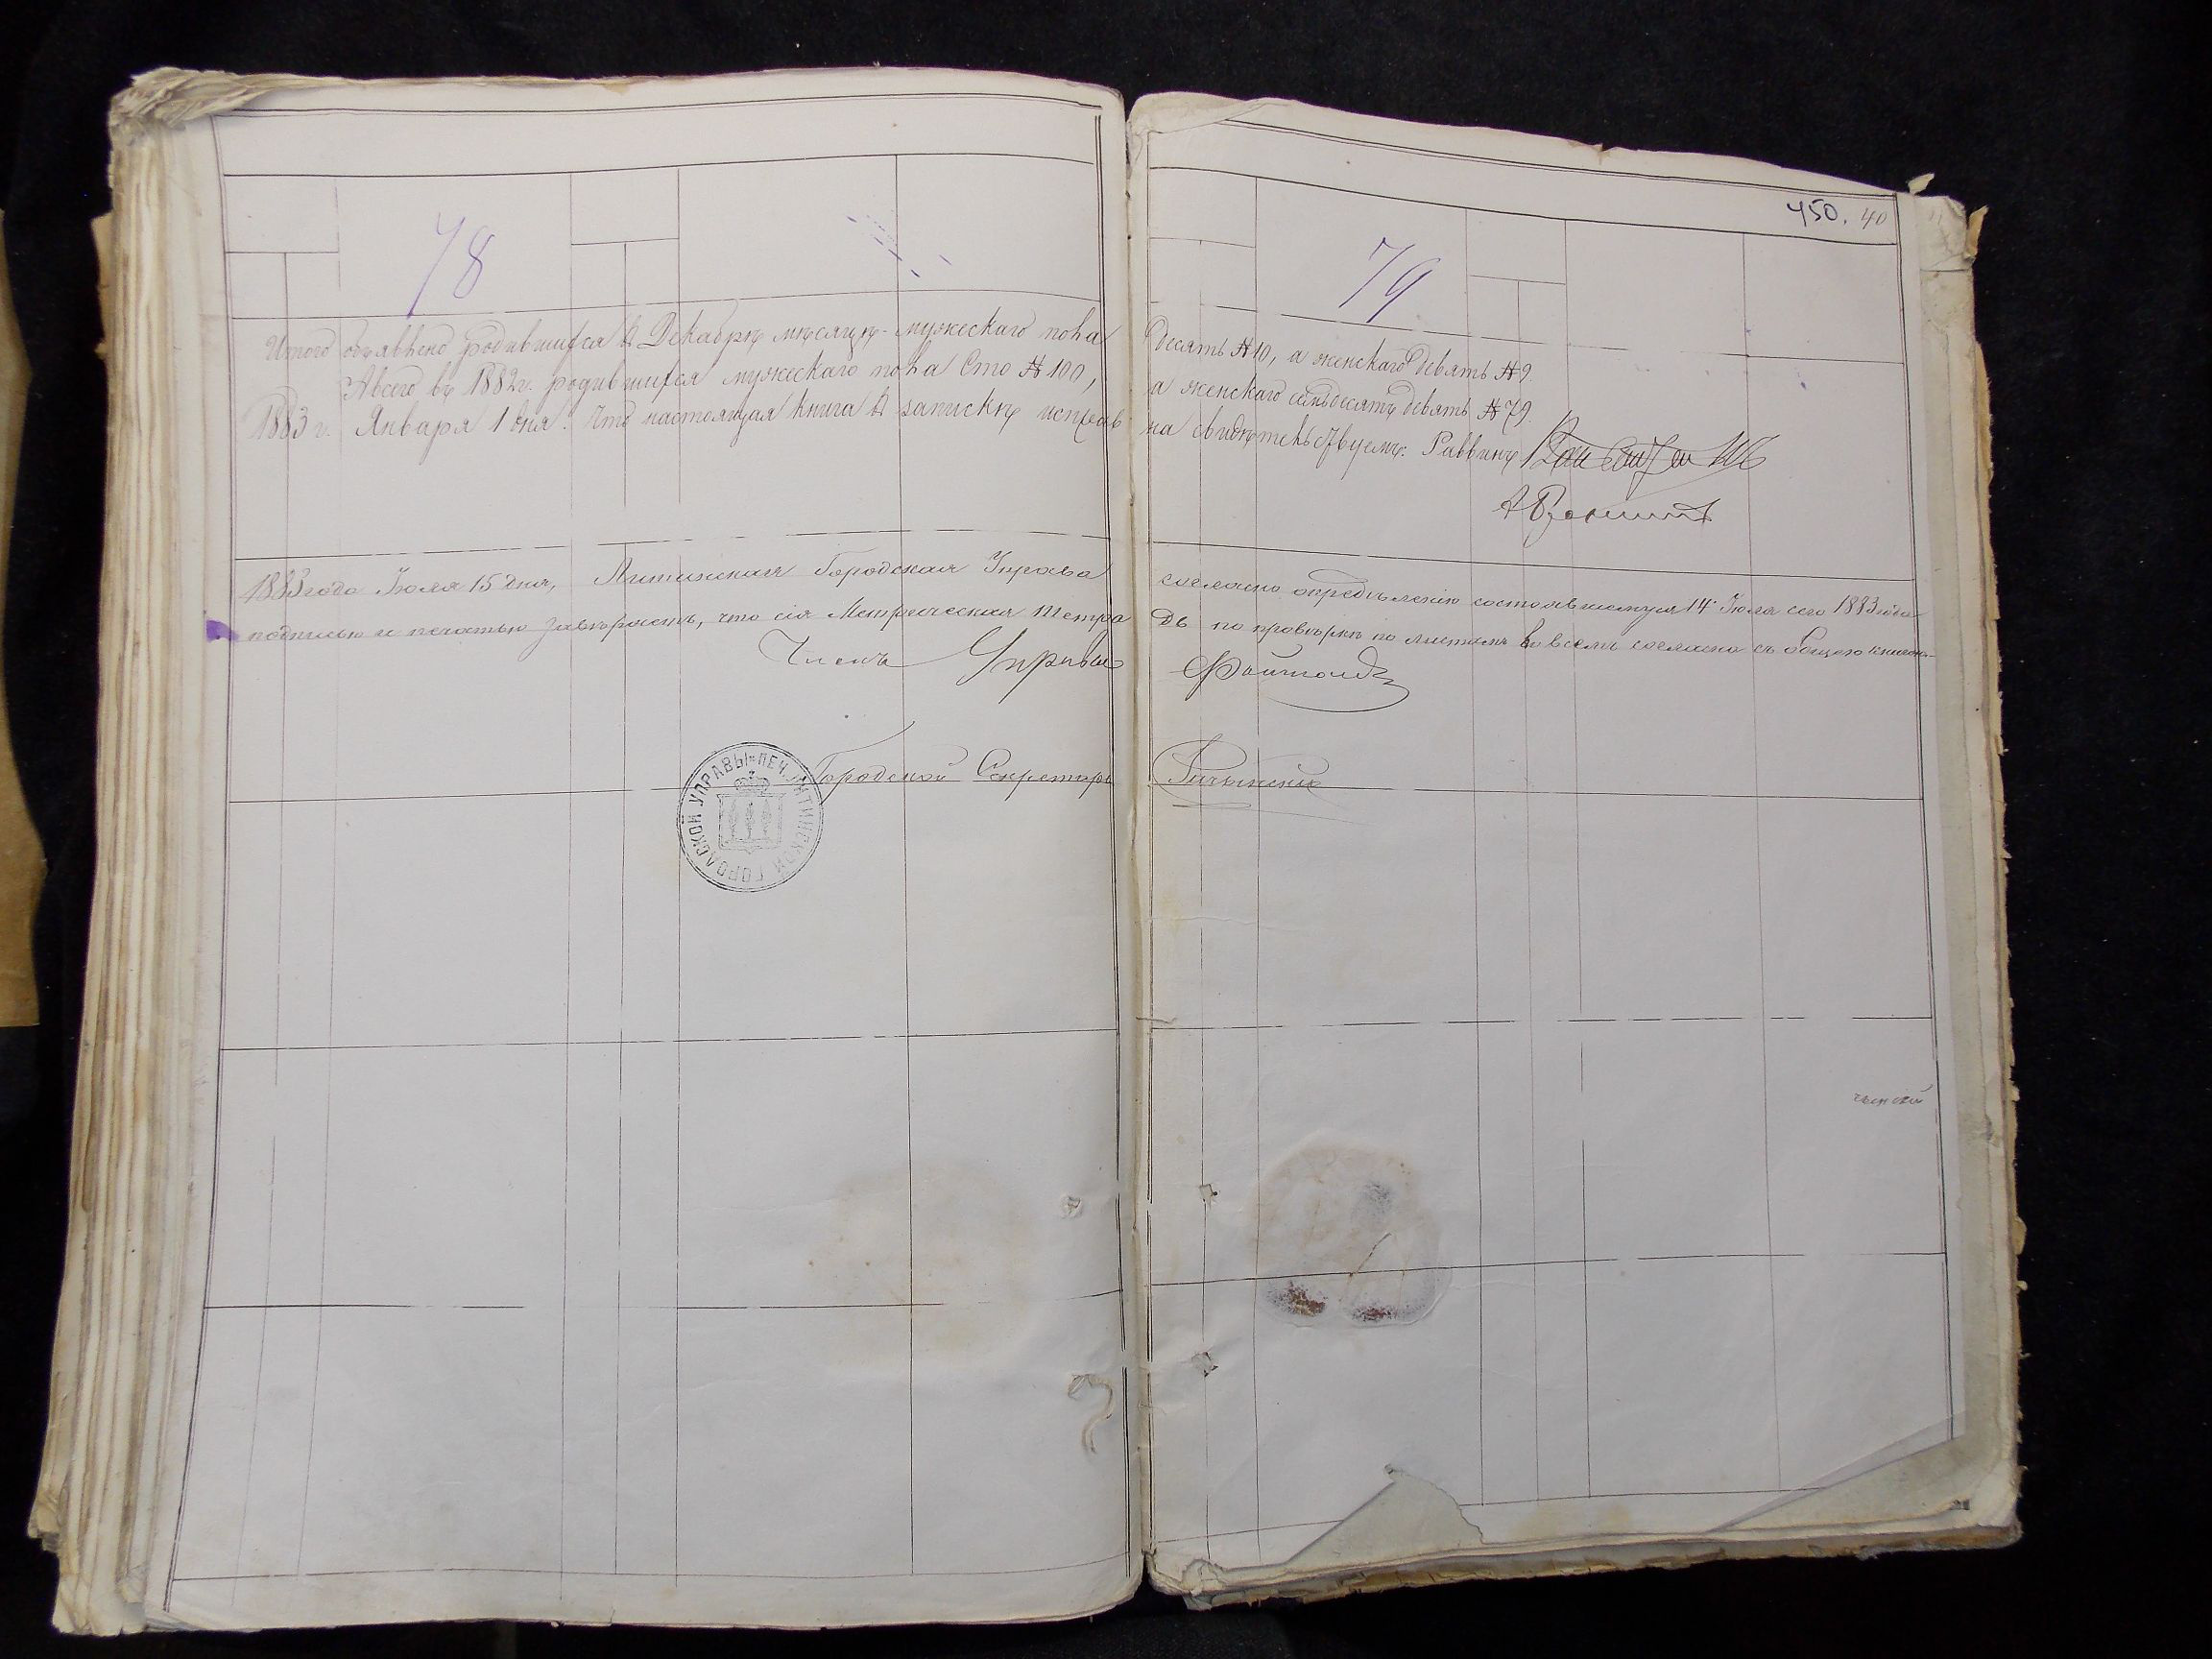 450. 40
78
79
Итого объявлено родившихся въ Декабрѣ мѣсяцѣ мужескаго пола десять № 10, а женскаго девять № 9.
А всего въ 1882 г. родившихся мужескаго пола Сто № 100, а женскаго семьдесятъ девять № 79.
1883 г. Января 1 дня. Что настоящая книга въ запискѣ исправна свидѣтельствуемъ. Раввинъ
1883 года Іюля 15 дня, Литинская Городская Управа согласно опредѣленію состоявшемуся 14 Іюля сего 1883 года
подписью и печатью завѣряетъ, что сія Метрическая тетрадь по провѣркѣ по листамъ во всемъ согласна съ общею книгою
Членъ Управы
Городской Секретарь
ПЕЧ. ЛИТИНСКОЙ ГОРОДСКОЙ УПРАВЫ